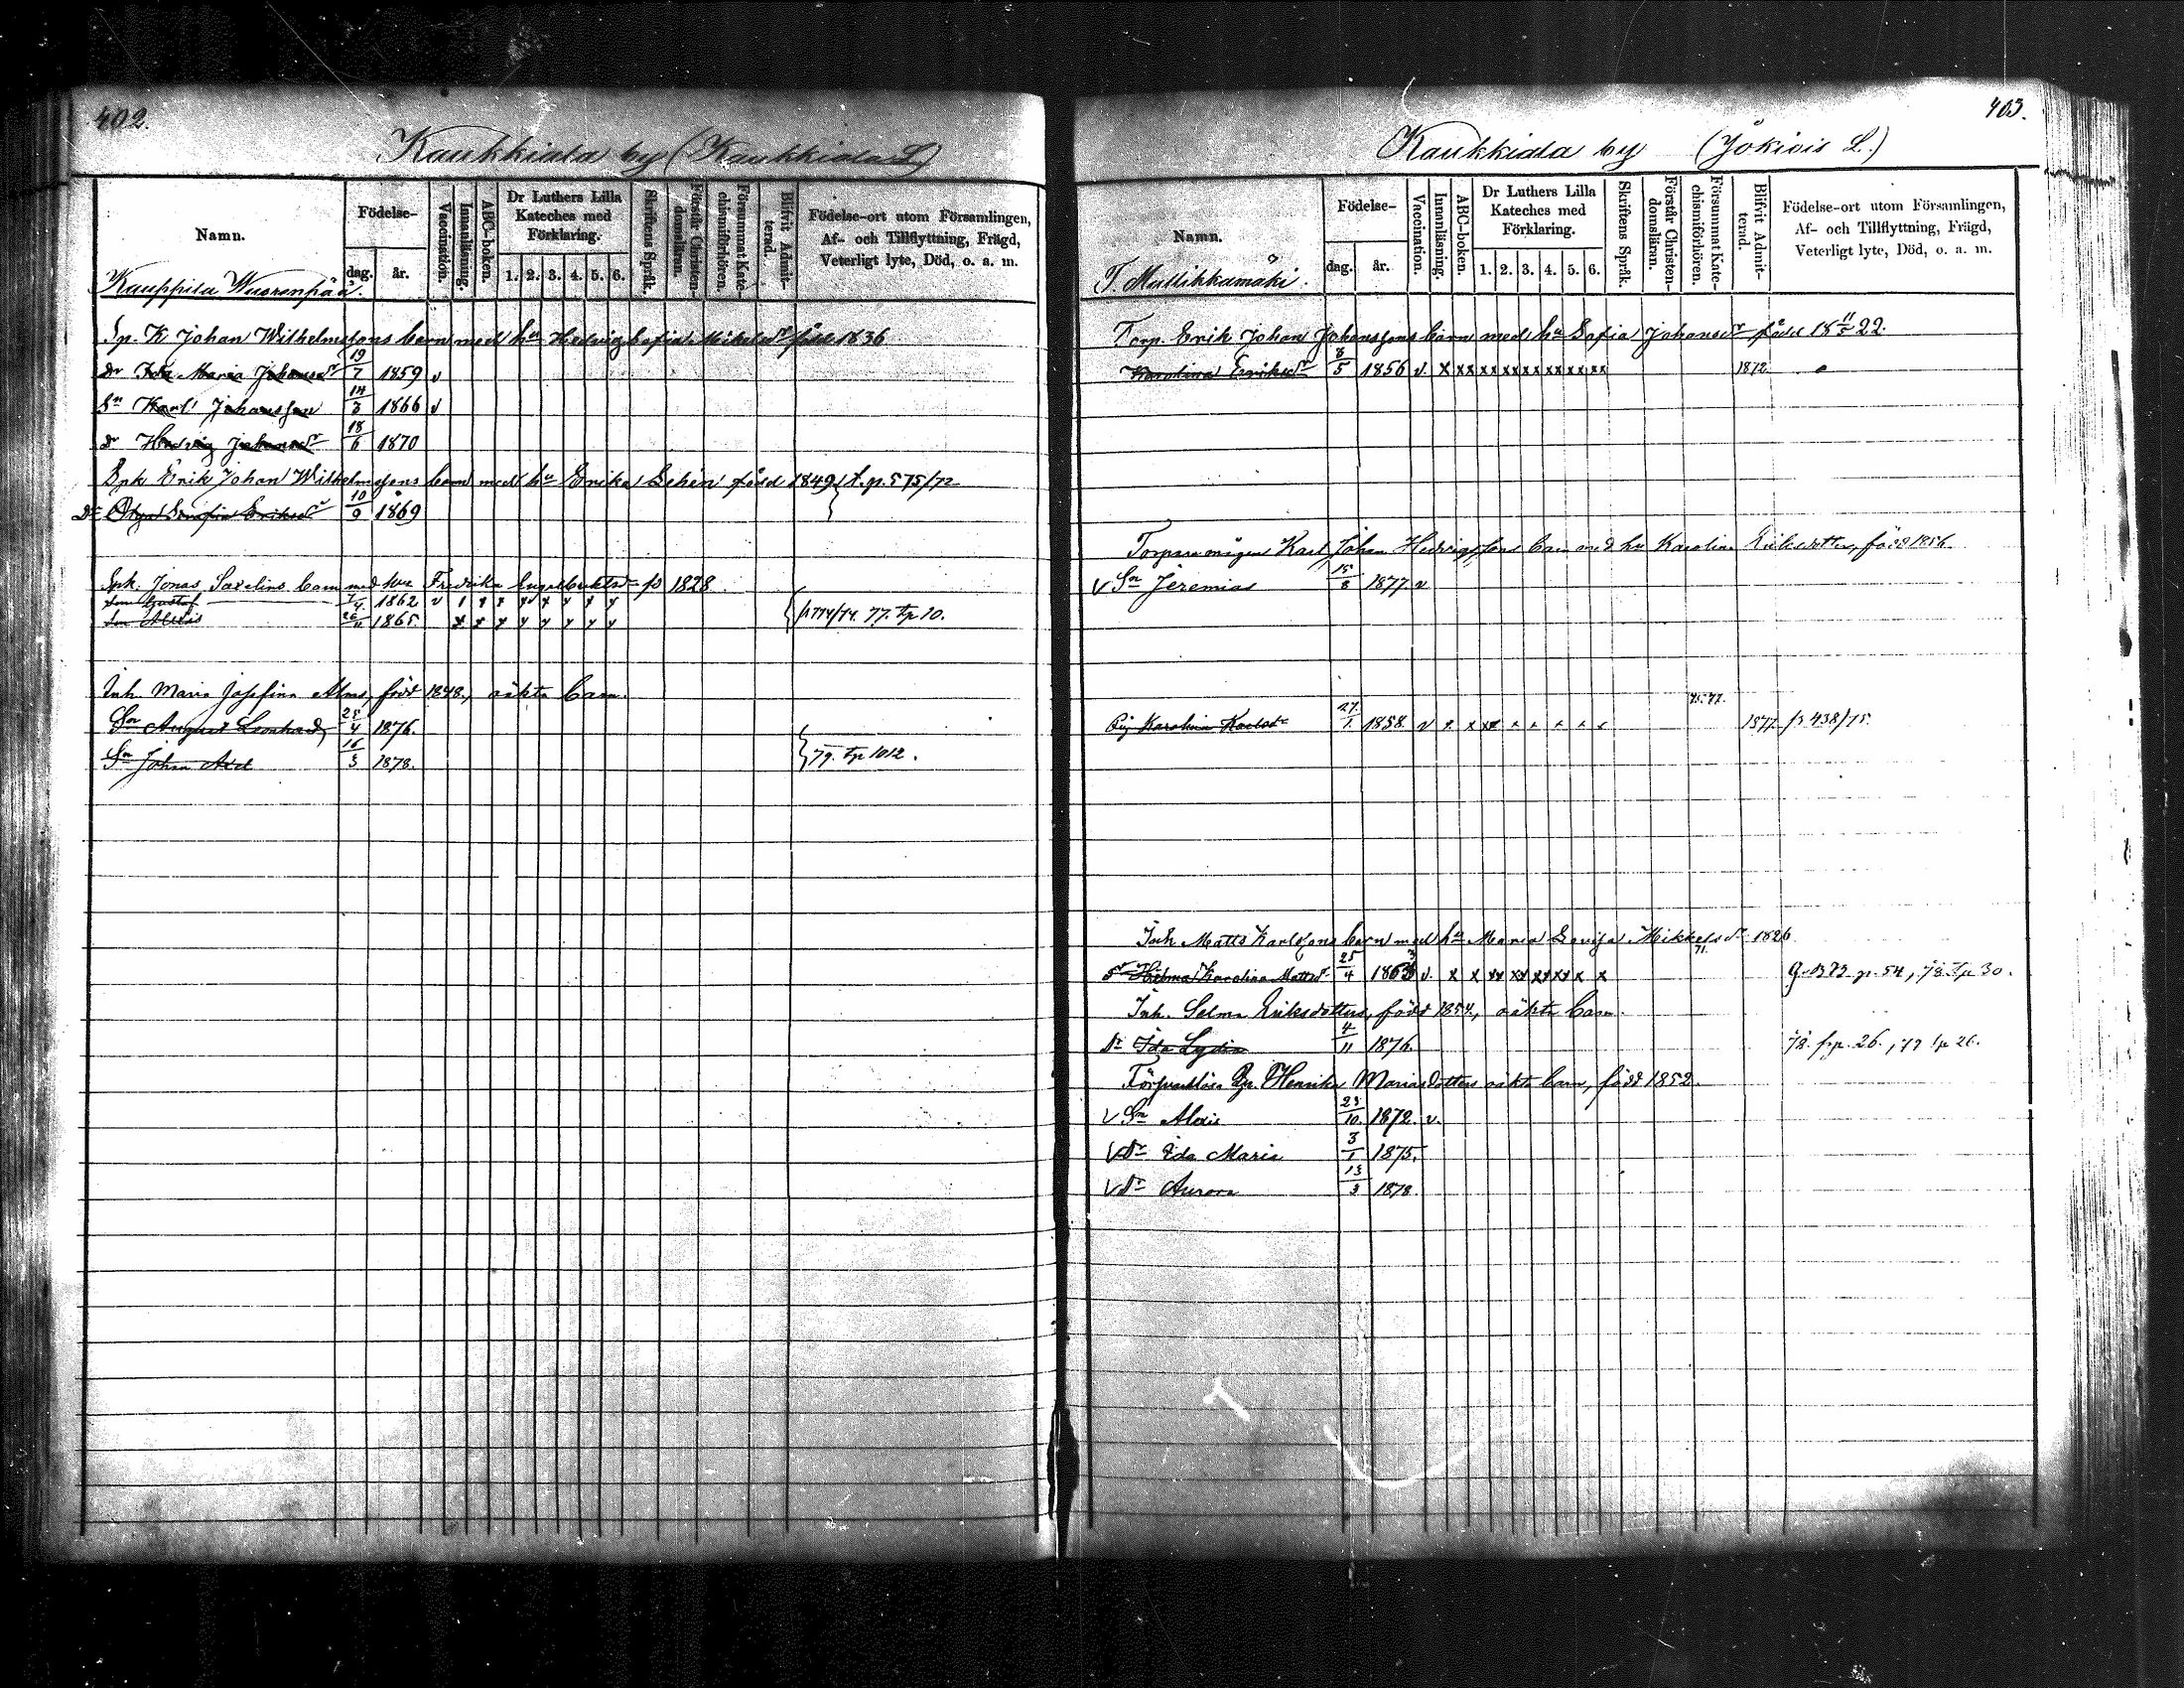 402.
Kaukkiala by (Kaukkiala L.)
Namn.
Födelse-
dag.
år.
Vaccination.
Innanläsning.
ABC-boken.
Dr Luthers Lilla Kateches med Förklaring.
1. 2. 3. 4. 5. 6.
Skriftens Språk.
Förstår Christendomsläran.
Försummat Katechismiförhören.
Blifvit Admitterad.
Födelse-ort utom Församlingen,
Af- och Tillflyttning, Frägd,
Veterligt lyte, Död, o. a. m.
Kauppila Wuorenpää.
Sp. K Johan Wilhelmssons barn med hu Hedvig Sofia Mikelsdr född 1836
dr Ida Maria Johansdr 19/7 1859 v
Sn Karl Johansson 14/3 1866 v
dr Hedvig Johansdr 18/6 1870
Spk Erik Johan Wilhelmssons barn med hu Erika född 1849
Dr Eriksdr 10/9 1869
Spk. Jonas Saxelins barn med hu Fredrika 1828.
Son Gustaf 7/4 1862 v x x x x x x x x
Son Alexis 26/11 1865. x x x x x x x x
77. tp 10.
Inh. Maria Josefina född 1848, oäkta barn.
Sn August Leonhard, 25/4 1876.
Sn Johan Axel 16/3 1878.
79. tp 1012.
403.
Kaukkiala by (Jokiois L.)
Namn.
Födelse-
dag.
år.
Vaccination.
Innanläsning.
ABC-boken.
Dr Luthers Lilla Kateches med Förklaring.
1. 2. 3. 4. 5. 6.
Skriftens Språk.
Förstår Christendomsläran.
Försummat Katechismiförhören.
Blifvit Admitterad.
Födelse-ort utom Församlingen,
Af- och Tillflyttning, Frägd,
Veterligt lyte, Död, o. a. m.
T. Mullikkamäki.
Torp. Erik Johan Johanssons barn med hu Sofia Johansdr född 18 11/5 22.
Karolina Eriksdr 8/5 1856 v. x xx xx xx xx xx xx xx 1872
Torpare mågen Karl Johan Hedvigssons barn med hu Karolina Eriksdotter, född 1856.
v Sn Jeremias 15/8 1877. v
75. 77.
Pig Karolina Karlsdr 27/1 1858. v x x xx x x x x x 1877. fr 438/75.
Inh Matts Karlssons barn med hu Maria Lovisa Mikkelsdr 1826
71.
dr Hilma Karolina Mattsdr 25/4 1863 v. x x xx xx xx xx x x p. 54, 78. tp 30.
Inh. Selma Eriksdotters, född 1854, oäkta barn.
dr Ida Lydia 4/11 1876. 78. fr p. 26., 79 tp 26.
Försvarslösa Henrika Mariasdotters oäkta barn, född 1852.
v Sn Alexis 23/10. 1872. v.
v dr Ida Maria 3/1 1875.
v dr Aurora 13/3 1878.